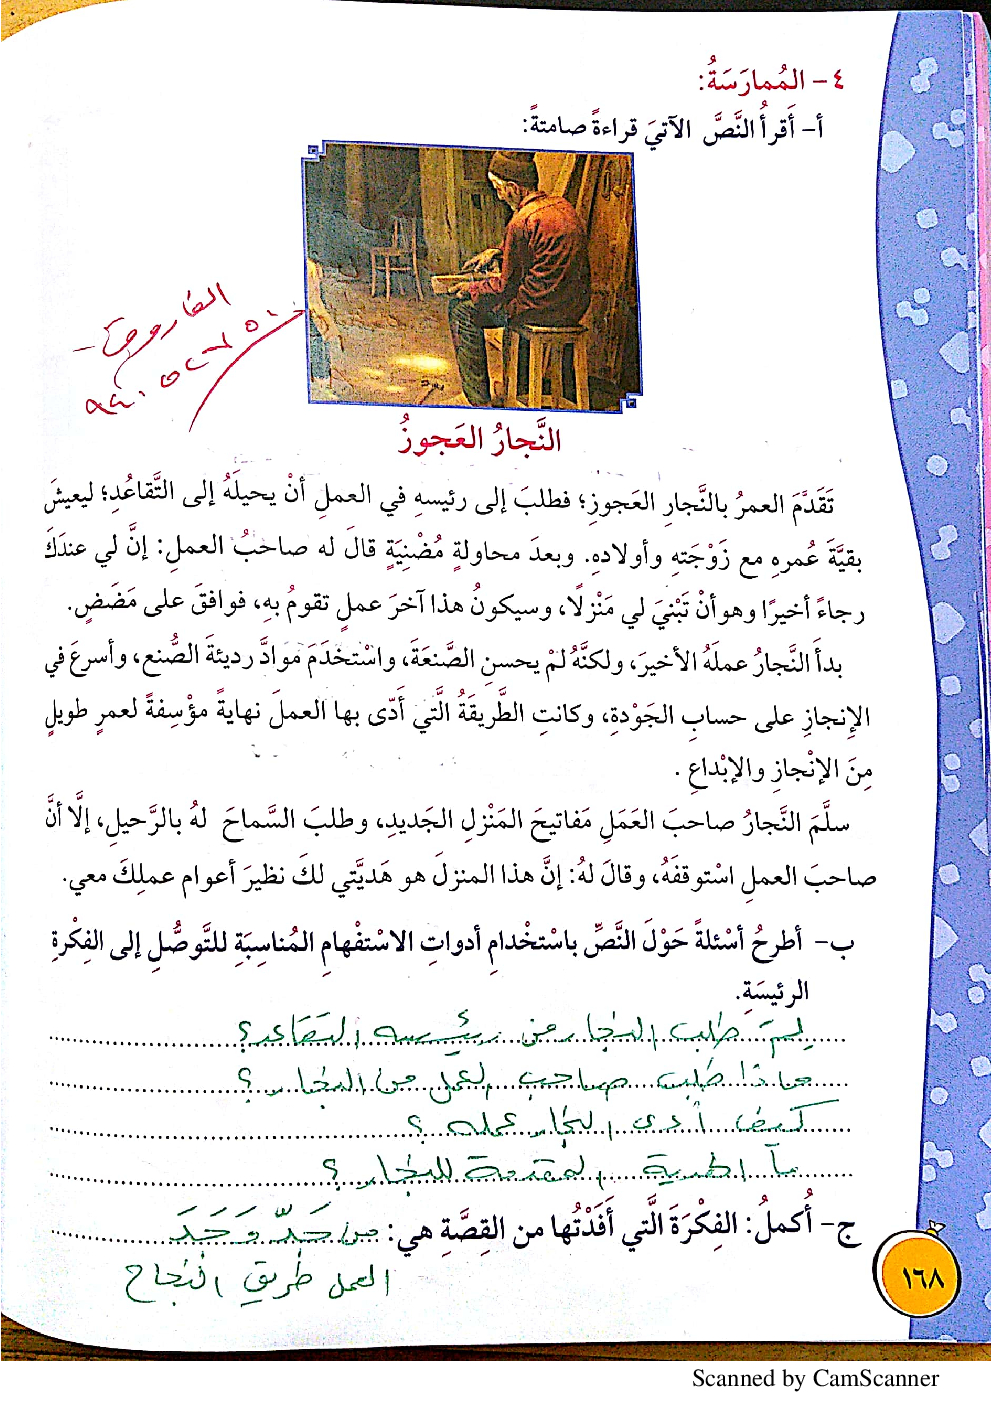 ٤- المُمارَسَةُ:
أ- أَقرأُ النَّصَّ الآتيَ قراءةً صامتةً:
النَّجارُ العَجوزُ
تَقَدَّمَ العمرُ بالنَّجار العَجوزِ؛ فطلبَ إلى رئيسهِ في العملِ أنْ يحيلَهُ إلى التَّقاعُدِ؛ ليعيشَ
بقيَّةَ عُمرهِ مع زَوْجَتهِ وأولادهِ. وبعدَ محاولةٍ مُضْنِيَةٍ قالَ له صاحبُ العملِ: إنَّ لي عندَكَ
رجاءً أخيرًا وهو أنْ تَبْنيَ لي مَنْزلًا، وسيكونُ هذا آخرَ عملٍ تقومُ بهِ، فوافقَ على مَضَضٍ.
بدأَ النَّجارُ عملَهُ الأخيرَ، ولكنَّهُ لمْ يحسنِ الصَّنعَةَ، واسْتخْدَمَ موادَّ رديئةَ الصُّنع، وأسرعَ في
الإنجازِ على حسابِ الجَوْدةِ، وكانتِ الطَّريقَةُ الَّتي أَدّى بها العملَ نهايةً مؤْسِفةً لعمرٍ طويلٍ
مِنَ الإنْجازِ والإبْداعِ .
سلَّمَ النَّجارُ صاحبَ العَمَلِ مَفاتيحَ المَنْزلِ الجَديدِ، وطلبَ السَّماحَ لهُ بالرَّحيلِ، إلّا أنَّ
صاحبَ العملِ اسْتوقفَهُ، وقالَ لهُ: إنَّ هذا المنزلَ هو هَديَّتي لكَ نظيرَ أعوام عملِكَ معي.
ب- أطرحُ أسْئلةً حَوْلَ النَّصِّ باسْتخْدامِ أدواتِ الاسْتفْهامِ المُناسِبَةِ للتَّوصُّلِ إلى الفِكْرةِ
الرئيسَةِ.
لِمَ طلب النجار من رئيسه التقاعد؟
ماذا طلب صاحب العمل من النجار؟
كيف أدى النجار عمله؟
ما الهدية المقدمة للنجار؟
ج- أُكملُ: الفِكْرَةَ الَّتي أَفَدْتُها من القِصَّةِ هي: من جَدّ وَجَدَ
العمل طريق النجاح
١٦٨
Scanned by CamScanner